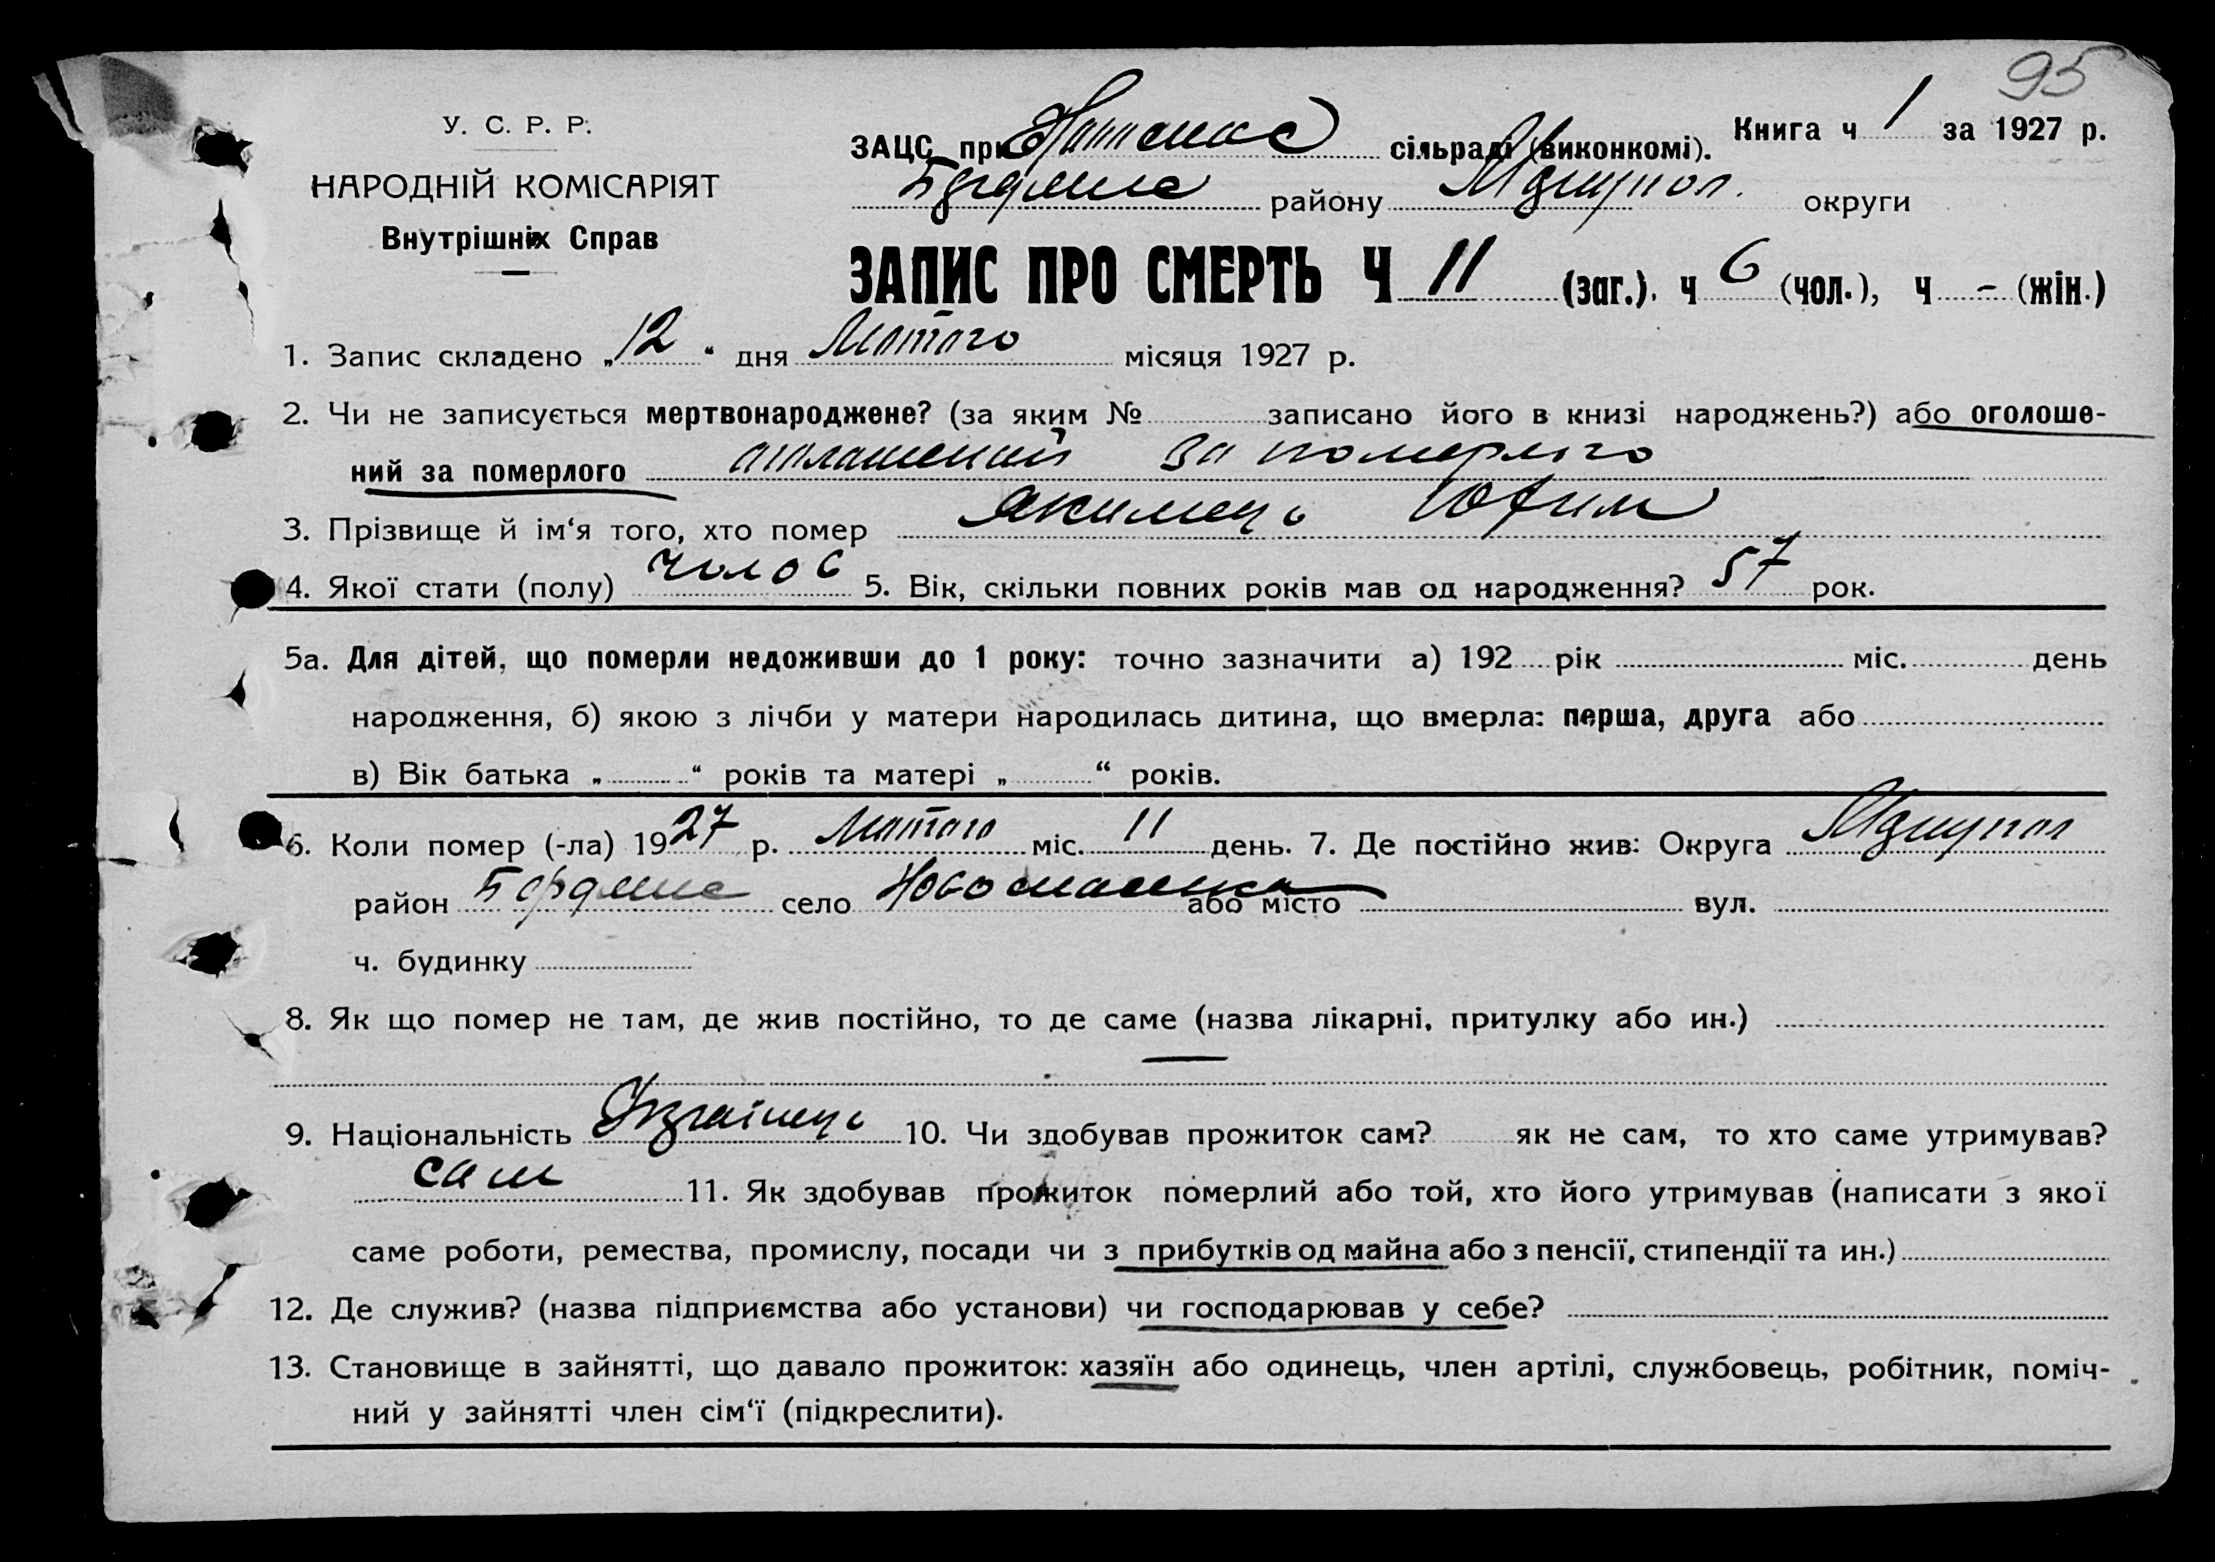 95
У. С. Р. Р.
НАРОДНІЙ КОМІСАРІЯТ
Внутрішніх Справ
ЗАЦС при сільраді (виконкомі). Книга ч 1 за 1927 р.
району Мариупол. округи
ЗАПИС ПРО СМЕРТЬ Ч 11 (заг.). ч 6 (чол.), ч - (жін.)
1. Запис складено „12“ дня Лютого місяця 1927 р.
2. Чи не записується мертвонароджене? (за яким № записано його в книзі народжень?) або оголоше-
ний за померлого за померлого
3. Прізвище й ім‘я того, хто помер Якимець Юхим
4. Якої стати (полу) чолов 5. Вік, скільки повних років мав од народження? 57 рок.
5а. Для дітей, що померли недоживши до 1 року: точно зазначити а) 192 рік міс. день
народження, б) якою з лічби у матери народилась дитина, що вмерла: перша, друга або
в) Вік батька „ “ років та матері „ “ років.
6. Коли помер (-ла) 1927 р. Лютого міс. 11 день. 7. Де постійно жив: Округа Мариупол
район село Новоспаська або місто вул.
ч. будинку
8. Як що помер не там, де жив постійно, то де саме (назва лікарні, притулку або ин.)
—
9. Національність Українець 10. Чи здобував прожиток сам? як не сам, то хто саме утримував?
сам 11. Як здобував прожиток померлий або той, хто його утримував (написати з якої
саме роботи, ремества, промислу, посади чи з прибутків од майна або з пенсії, стипендії та ин.)
12. Де служив? (назва підприємства або установи) чи господарював у себе?
13. Становище в зайнятті, що давало прожиток: хазяїн або одинець, член артілі, службовець, робітник, поміч-
ний у зайнятті член сім‘ї (підкреслити).